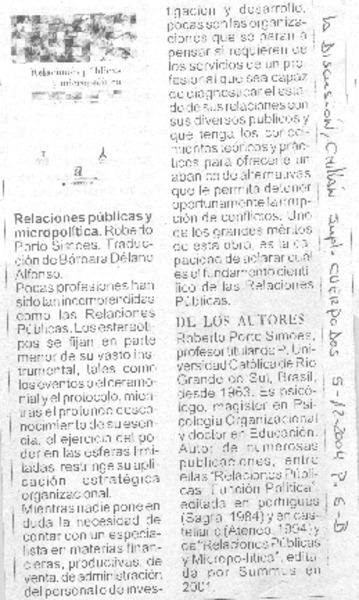 Relaciones públicas
y micropolítica
Relaciones públicas y
micropolítica. Roberto
Porto Simoes. Traduc-
ción de Bárbara Délano
Alfonso.
Pocas profesiones han
sido tan incomprendidas
como las Relaciones
Públicas. Los estereoti-
pos se fijan en parte
menor de su vasto ins-
trumental, tales como
los eventos o el ceremo-
nial y el protocolo, mien-
tras el profundo desco-
nocimiento de su esen-
cia, el ejercicio del po-
der en las esferas limi-
tadas, restringe su apli-
cación estratégica
organizacional.
Mientras nadie pone en
duda la necesidad de
contar con un especia-
lista en materias finan-
cieras, productivas, de
venta, de administración
del personal o de inves-
tigación y desarrollo,
pocas son las organiza-
ciones que se paran a
pensar si requieren de
los servicios de un pro-
fesional que sea capaz
de diagnosticar el esta-
do de sus relaciones con
sus diversos públicos y
que tenga los conoci-
mientos teóricos y prác-
ticos para ofrecerle un
abanico de alternativas
que le permita detener
oportunamente la irrup-
ción de conflictos. Uno
de los grandes méritos
de esta obra, es la ca-
pacidad de aclarar cuál
es el fundamento cientí-
fico de las Relaciones
Públicas.
DE LOS AUTORES
Roberto Porto Simoes,
profesor titular de P. Uni-
versidad Católica de Rio
Grande do Sul, Brasil,
desde 1963. Es psicó-
logo, magister en Psi-
cología Organizacional
y doctor en Educación.
Autor de numerosas
publicaciones, entre
ellas "Relaciones Públi-
cas: Función Política",
editada en portugués
(Sagra, 1984) y en cas-
tellano (Ateneo, 1994) y
de "Relaciones Públicas
y Micropo-lítica", edita-
da por Summus en
2001.
La Discusión, Chillán supl. CUERPO DOS 5-12-2004 P. 6-B